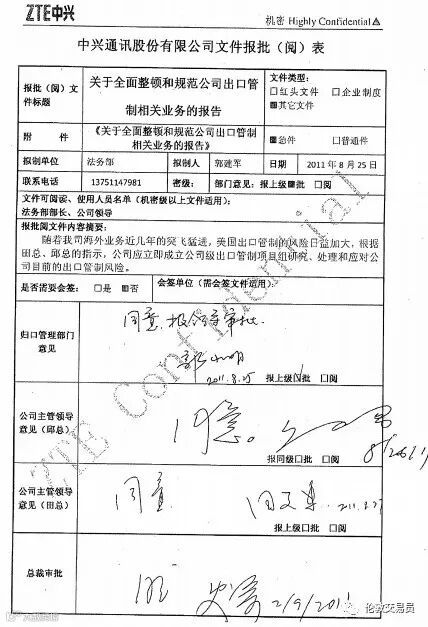 ZTE中兴
机密 Highly Confidential△
中兴通讯股份有限公司文件报批（阅）表
报批（阅）文件标题
关于全面整顿和规范公司出口管制相关业务的报告
文件类型：
□红头文件 □企业制度
■其它文件
附 件
《关于全面整顿和规范公司出口管制相关业务的报告》
■急件 □普通件
拟制单位 法务部 拟制人 郭建军 日期 2011 年 8 月 25 日
联系电话 13751147981 密级： 部门意见：报上级■批 □阅
文件可阅读、使用人员名单（机密级以上文件适用）：
法务部部长、公司领导
报批阅文件内容摘要：
随着我司海外业务近几年的突飞猛进，美国出口管制的风险日益加大，根据
田总、邱总的指示，公司应立即成立公司级出口管制项目组研究、处理和应对公
司目前的出口管制风险。
是否需要会签： □是 ■否
会签单位（需会签文件适用）：
归口管理部门意见
同意，报领导审批。
2011.8.25
报上级□批 □阅
公司主管领导意见（邱总）
同意。
报同级□批 □阅
公司主管领导意见（田总）
同意
报上级□批 □阅
总裁审批
2/9/2011
ZTE Confidential
伦敦交易员